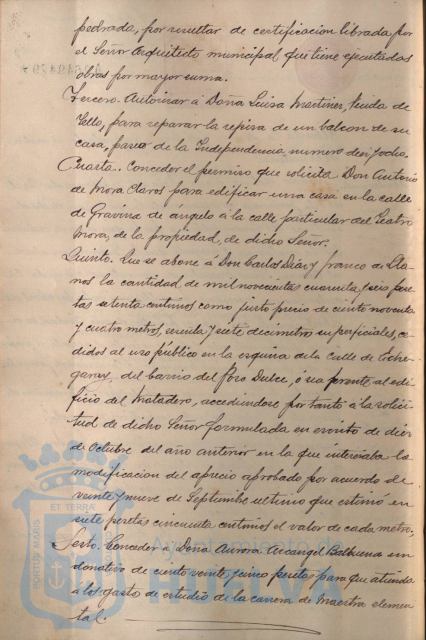 pedrada, por resultar de certificacion librada por
el Señor Arquitecto municipal que tiene ejecutadas
obras por mayor suma.
Tercero. Autorizar á Doña Luisa Martinez, viuda de
Tello, para reparar la repisa de un balcon de su
casa, paseo de la Independencia, numero dieziocho.
Cuarto. Conceder el permiso que solicita Don Antonio
de Mora Claros para edificar una casa en la calle
de Gravina de angulo á la calle particular del Teatro
Mora, de la propiedad, de dicho Señor.
Quinto. Que se abone á Don Carlos Diaz y franco de Lla-
nos la cantidad de mil novecientas cuarenta y seis pese-
tas setenta centimos como justo precio de ciento noventa
y cuatro metros, y siete decimetros superficiales, ce-
didos al uso público en la esquina de la calle de Eche-
garay, del barrio del Pozo Dulce, ó sea frente al edi-
ficio del Matadero, accediendose por tanto á la solici-
tud de dicho Señor formulada en escrito de diez
de Octubre del año anterior en la que interesaba la
modificacion del aprecio aprobado por acuerdo de
veinte y nueve de Septiembre ultimo que estimó en
siete pesetas cincuenta centimos el valor de cada metro.
Sexto. Conceder á Doña Aurora Arcangel Balbuena un
donativo de ciento veinte y cinco pesetas para que atienda
a los gasto de estudio de la carrera de Maestra elemen-
tal.
ET TERRA
PORTUS MARIS
Ayuntamiento de
HUELVA